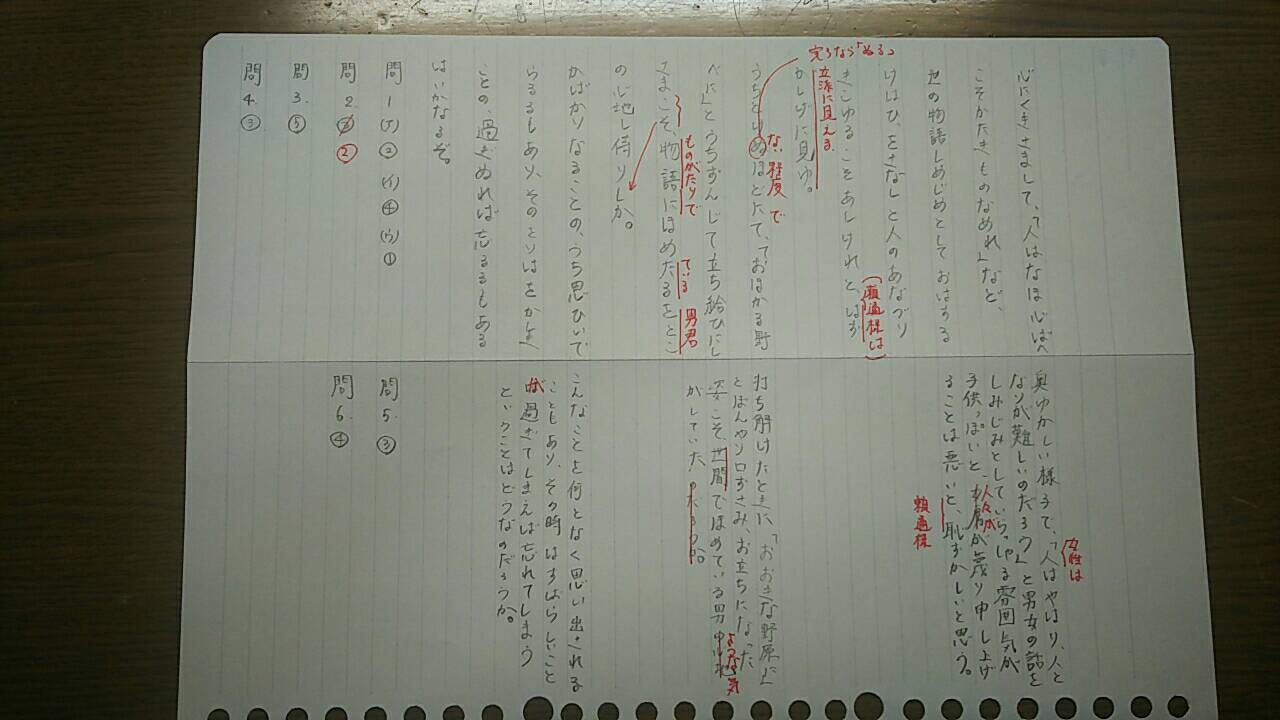 心にくきさまして、「人はなほ心ばへ
こそかたきものなめれ」など、
世の物語しめじめとしておはする
けはひ、をさなしと人のあなづり
きこゆるこそあしけれと、はづ
(頼通様は)
かしげに見ゆ。
立派に見える
うちとけぬほどにて、「おほかる野
完了なら「ぬる」
な、程度で
べに」とうちずんじて立ち給ひにし
さまこそ、物語にほめたるをとこ
ものがたりで
ている
男君
の心地し侍りしか。
かばかりなることの、うち思ひいで
らるるもあり、そのをりはをかしき
ことの、過ぎぬれば忘るるもある
はいかなるぞ。
問1 (ア)② (イ)④ (ウ)①
問2. ②
問3. ⑤
問4. ③
奥ゆかしい様子で、「人はやはり、人と
女性は
なりが難しいのだろう」と男女の話を
しみじみとしていらっしゃる雰囲気が
子供っぽいと人々が侮り申し上げ
ることは悪いと、恥ずかしいと思う。
頼通様
打ち解けたときに、「おおきな野原に」
とぼんやり口ずさみ、お立ちになった
姿こそ世間でほめている男の心地
ような気
がしていたのだろうか。
こんなことを何となく思い出される
こともあり、その時はすばらしいこと
が過ぎてしまえば忘れてしまう
ということはどうなのだろうか。
問5. ③
問6. ④